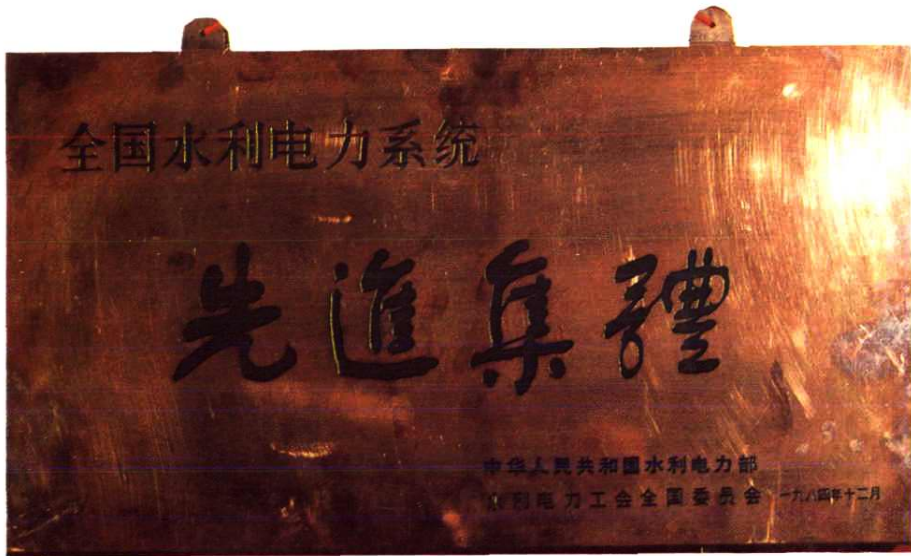 全国水利电力系统
先進集體
中华人民共和国水利电力部
水利电力工会全国委员会 一九八四年十二月